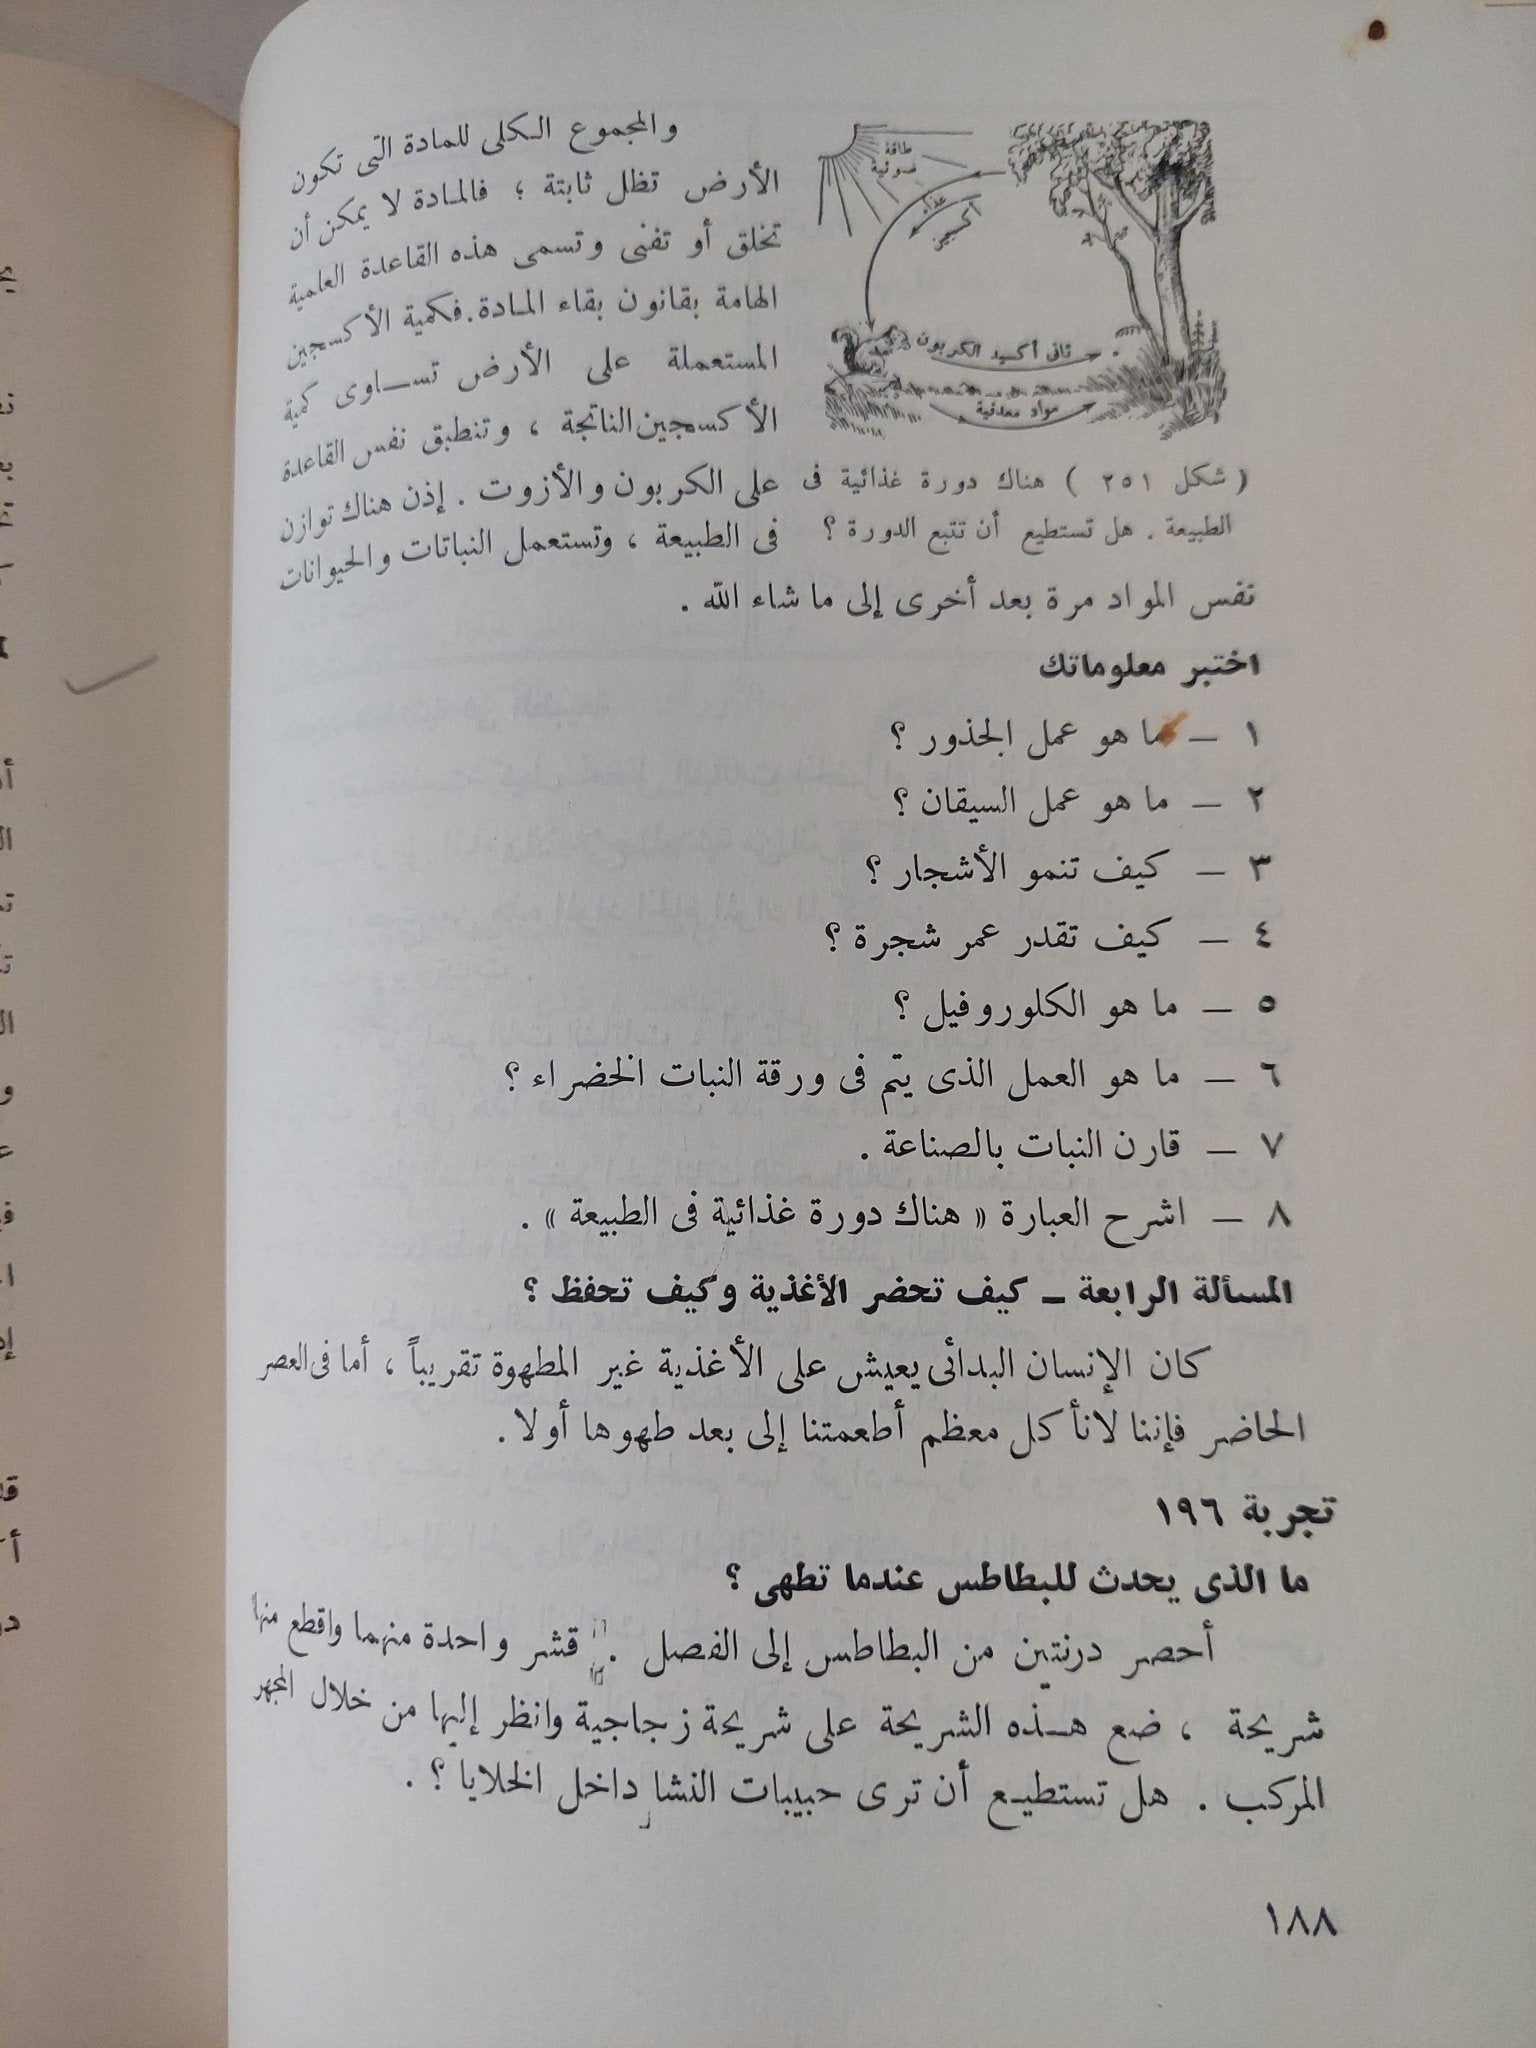 طاقة
ضوئية
غذاء
أكسجين
ثانى أكسيد الكربون
مواد معدنية
( شكل ٢٥١ ) هناك دورة غذائية فى
الطبيعة . هل تستطيع أن تتبع الدورة ؟
والمجموع الكلى للمادة التى تكون
الأرض تظل ثابتة ؛ فالمادة لا يمكن أن
تخلق أو تفنى وتسمى هذه القاعدة العلمية
الهامة بقانون بقاء المادة . فكمية الأكسجين
المستعملة على الأرض تساوى كمية
الأكسجين الناتجة ، وتنطبق نفس القاعدة
على الكربون والأزوت . إذن هناك توازن
فى الطبيعة ، وتستعمل النباتات والحيوانات
نفس المواد مرة بعد أخرى إلى ما شاء الله .
اختبر معلوماتك
١ – ما هو عمل الجذور ؟
٢ – ما هو عمل السيقان ؟
٣ – كيف تنمو الأشجار ؟
٤ – كيف تقدر عمر شجرة ؟
٥ – ما هو الكلوروفيل ؟
٦ – ما هو العمل الذى يتم فى ورقة النبات الخضراء ؟
٧ – قارن النبات بالصناعة .
٨ – اشرح العبارة « هناك دورة غذائية فى الطبيعة » .
المسألة الرابعة – كيف تحضر الأغذية وكيف تحفظ ؟
كان الإنسان البدائى يعيش على الأغذية غير المطهوة تقريباً ، أما فى العصر
الحاضر فإننا لانأكل معظم أطعمتنا إلى بعد طهوها أولا .
تجربة ١٩٦
ما الذى يحدث للبطاطس عندما تطهى ؟
أحصر درنتين من البطاطس إلى الفصل . قشر واحدة منهما واقطع منها
شريحة ، ضع هذه الشريحة على شريحة زجاجية وانظر إليها من خلال المجهر
المركب . هل تستطيع أن ترى حبيبات النشا داخل الخلايا ؟ .
١٨٨